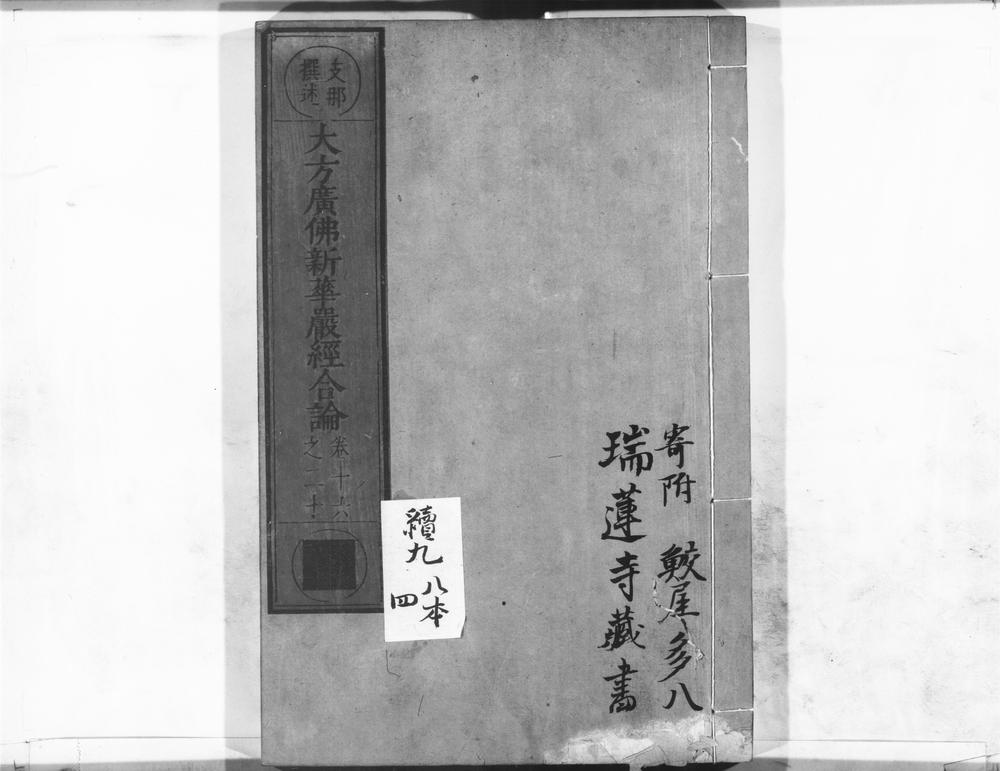 寄附 鮫屋多八
瑞蓮寺藏書
支那
撰述
大方廣佛新華嚴經合論
卷十六
之二十
續九
八本
四